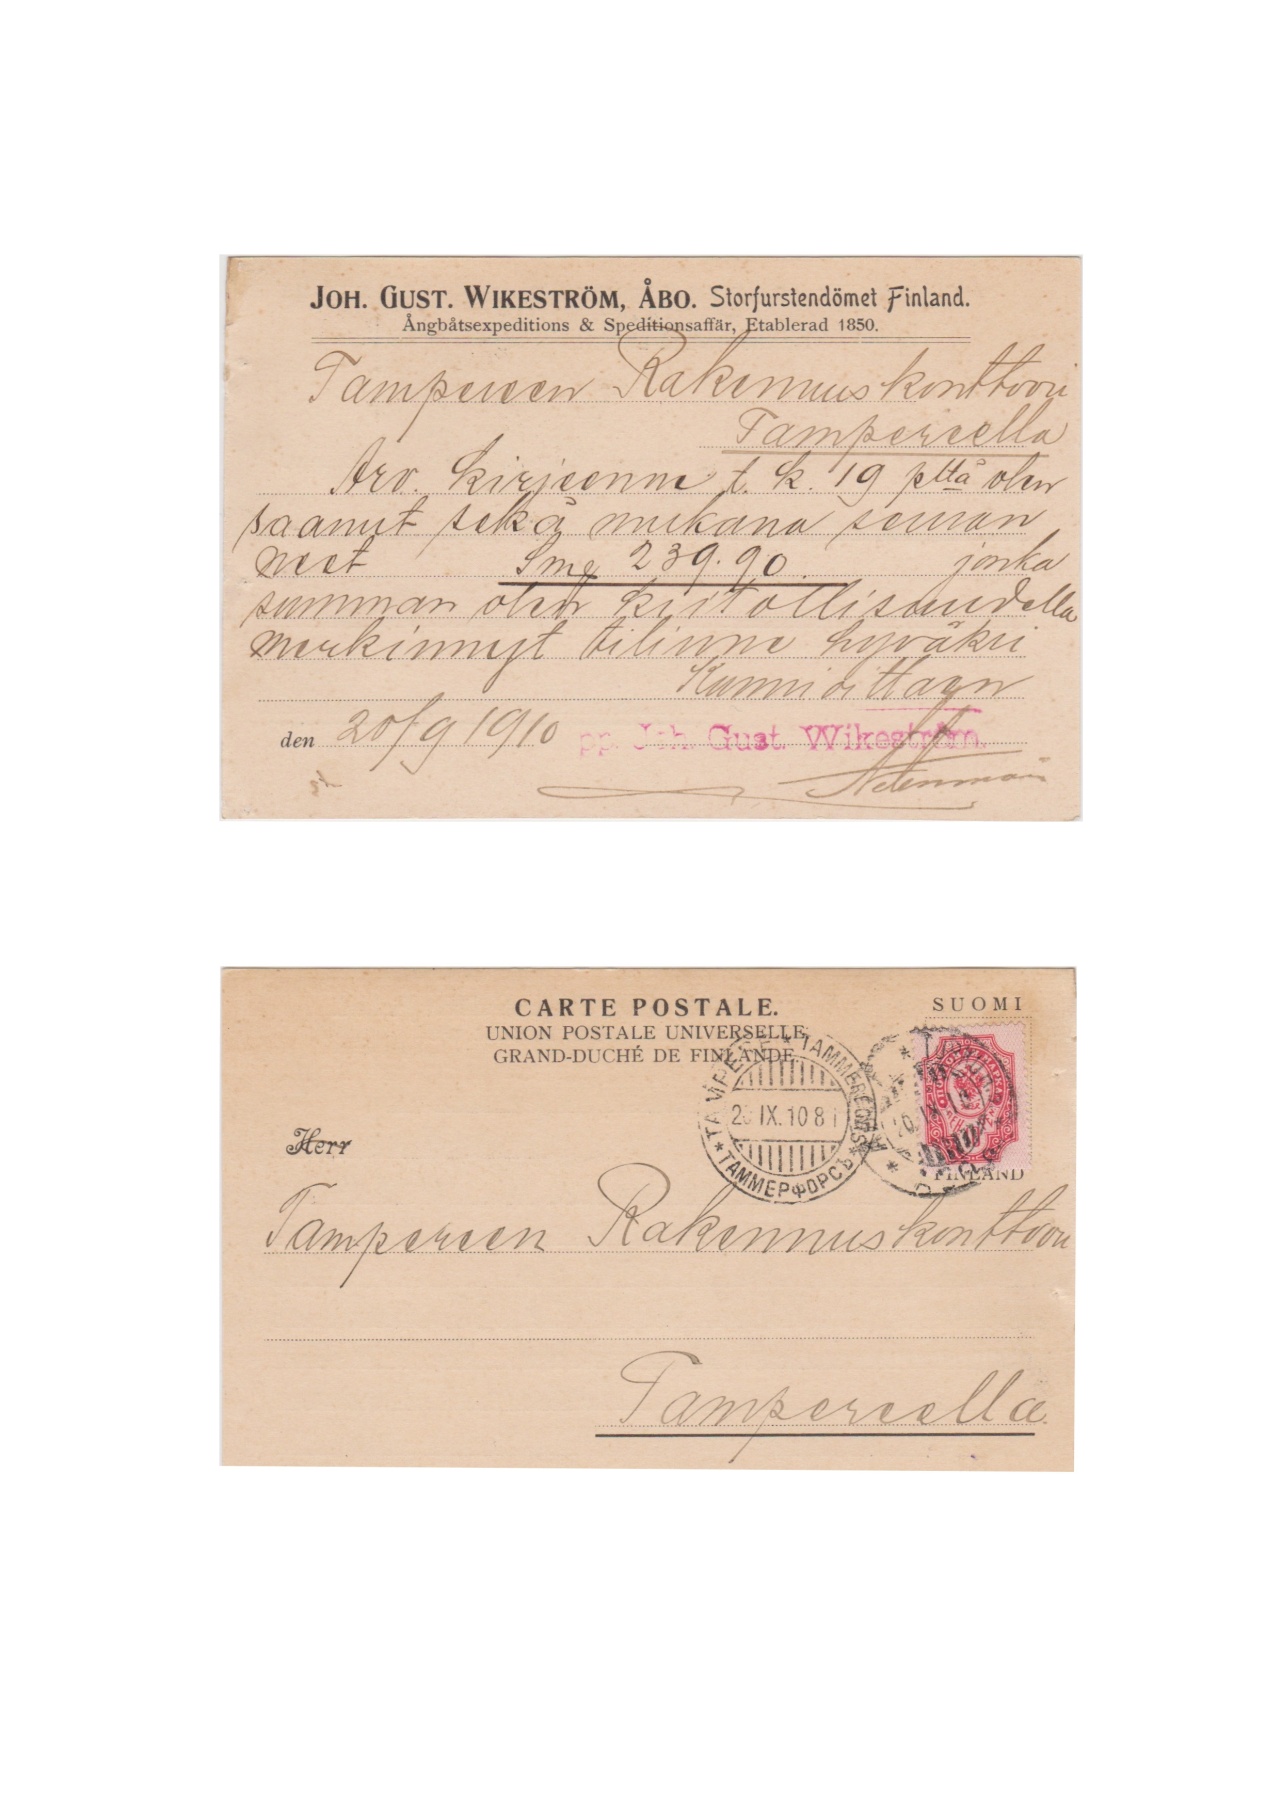 JOH. GUST. WIKESTRÖM, ÅBO. Storfurstendömet Finland.
Ångbåtsexpeditions & Speditionsaffär, Etablerad 1850.
Tampereen Rakennuskonttoori
Tampereella
Arv. kirjeenne t. k. 19 pttä olen
saanut sekä mukana seuran
neet Smk 239.90. jonka
summan olen kiitollisuudella
merkinnyt tilinne hyväksi
Kunnioittaen
den 20/9 1910 pp. Joh. Gust. Wikeström.
CARTE POSTALE.
UNION POSTALE UNIVERSELLE
GRAND-DUCHÉ DE FINLANDE.
SUOMI
TAMPERE * TAMMERFORS * ТАММЕРФОРСЪ *
IX.10 8
FINLAND
Herr
Tampereen Rakennuskonttoori
Tampereella.